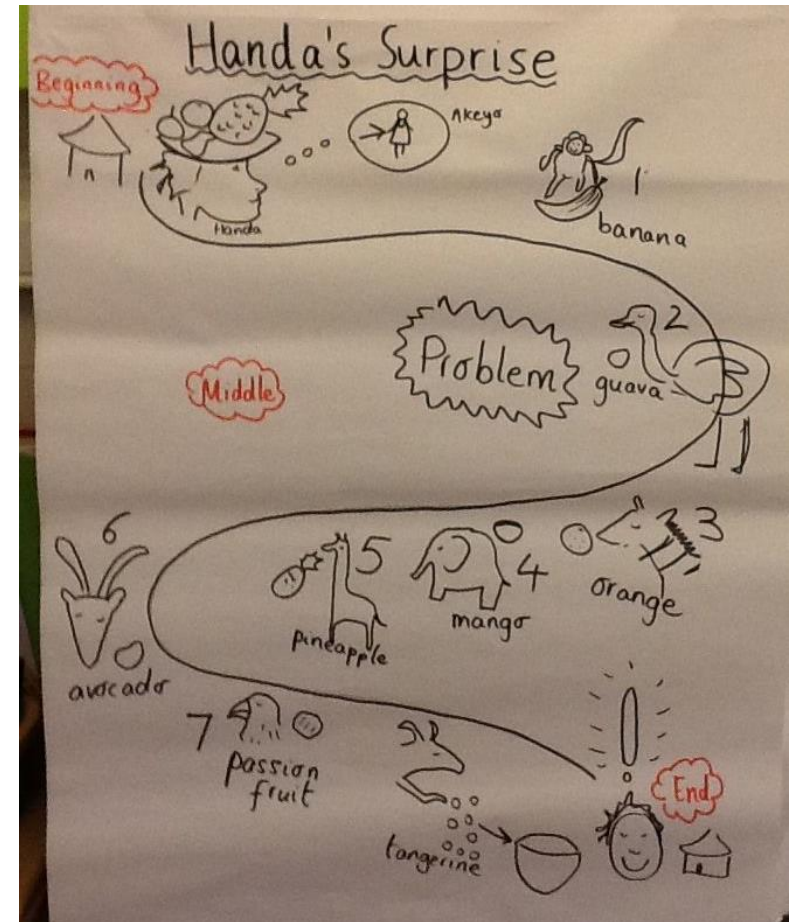 Handa's Surprise
Beginning
Akeyo
Handa
1
banana
2
Problem
guava
Middle
3
orange
4
mango
5
pineapple
6
avocado
7
passion
fruit
tangerine
End